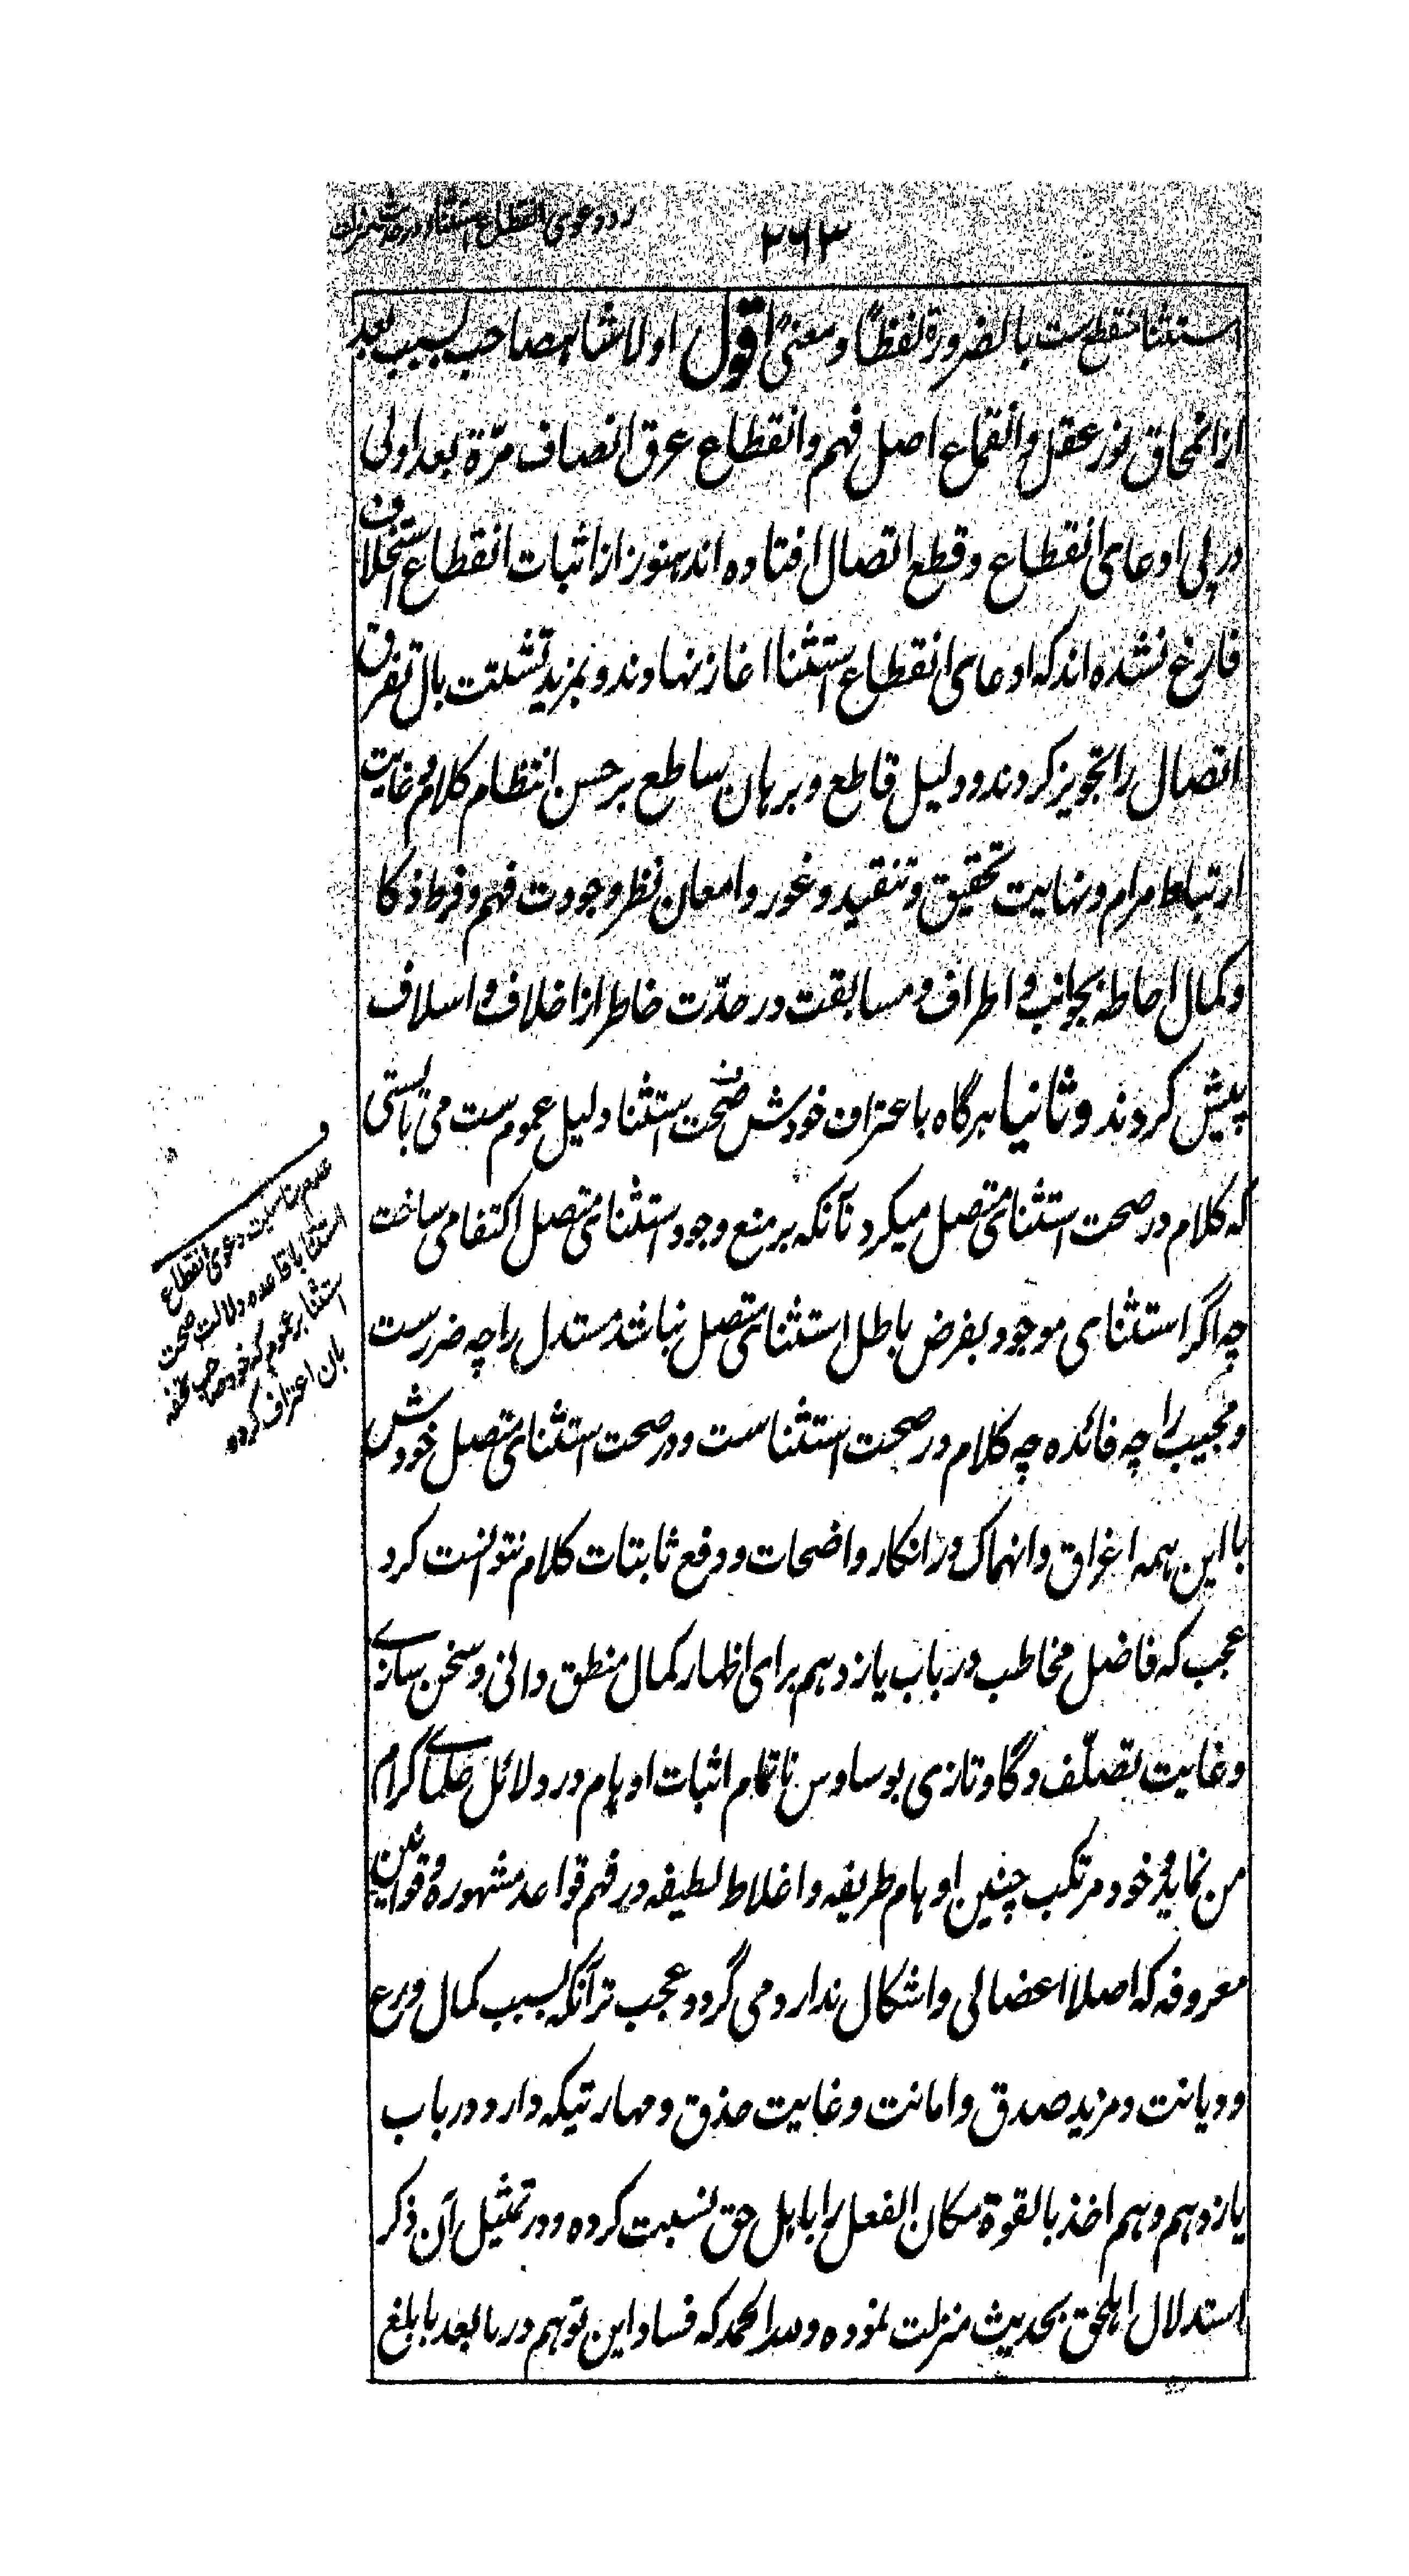 رد دعوی انقطاع استثنا در حدیث منزلت
۲۶۳
استثنا منقطع ست بالضرورة لفظًا و معنیً اقول اولا شاهصاحب بسبب بعد
از انمحاق نور عقل و انقماع اصل فهم و انقطاع عرق انصاف مرّة بعد اولی
در پی ادعای انقطاع و قطع اتصال افتاده اند هنوز از اثبات انقطاع استخلاف
فارغ نشده اند که ادعای انقطاع استثنا اغاز نهادند و بمزید تشتت بال تفرق
اتصال را تجویز کردند و دلیل قاطع و برهان ساطع بر حسن انتظام کلام و غایت
ارتباط مرام و نهایت تحقیق و تنقید و غور و امعان نظر و جودت فهم و فرط ذکا
و کمال احاطه بجوانب و اطراف و مسابقت در حدّت خاطر از اخلاف و اسلاف
پیش کردند و ثانیا هرگاه باعتراف خودش صحت استثنا دلیل عموم ست می بایستی
که کلام در صحت استثنای متصل میکرد نآنکه بر منع وجود استثنای متصل اکتفا می ساخت
چه اگر استثنای موجود بفرض باطل استثنای متصل نباشد مستدل را چه ضررست
و مجیب را چه فائده چه کلام در صحت استثناست و در صحت استثنای متصل خودش
با این همه اغراق و انهماک در انکار واضحات و دفع ثابتات کلام نتوانست کرد
عجب که فاضل مخاطب در باب یازدهم برای اظهار کمال منطق دانی و سخن سازے
و غایت تصلّف و گاوتازی بوساوس ناتمام اثبات اوهام در دلائل علماے کرام
من نماید و خود مرتکب چنین اوهام طریفه و اغلاط لطیفه در فهم قواعد مشهوره و قوانین
معروفه که اصلا اعضالی و اشکال ندارد می گردد و عجب تر آنکه بسبب کمال ورع
و دیانت و مزید صدق و امانت و غایت حذق و مهارتیکه دارد در باب
یازدهم وهم اخذ بالقوة مکان الفعل را باهل حق نسبت کرده و در تمثیل آن ذکر
استدلال اهلحق بحدیث منزلت نموده و لله الحمد که فساد این توهم در ما بعد بابلغ
ف
عدم مناسبت دعوی انقطاع
استثنا با قاعده دلالت صحت
استثنا بر عموم که خود صاحب تحفه
بان اعتراف کرده